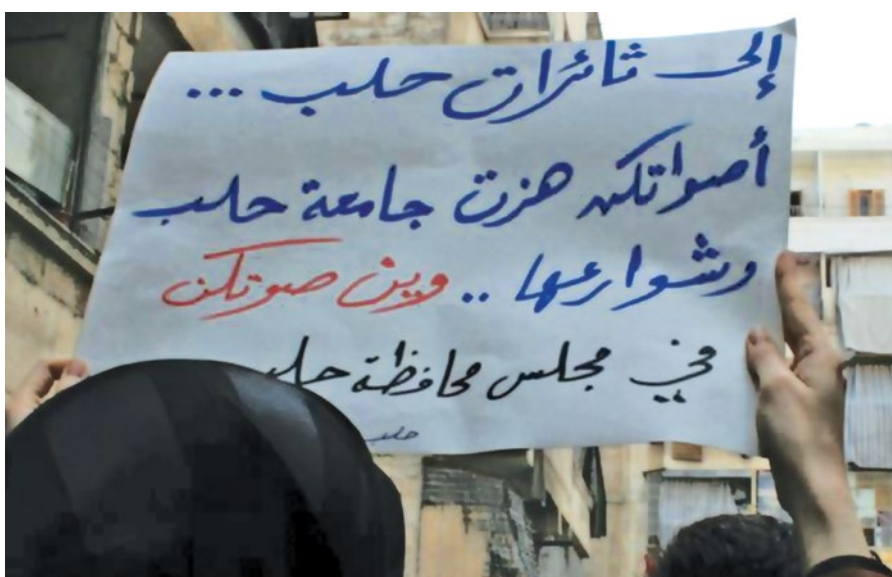 إلى ثائرات حلب ...
أصواتكن هزت جامعة حلب
وشوارعها .. وين صوتكن
في مجلس محافظة حلب
حلب